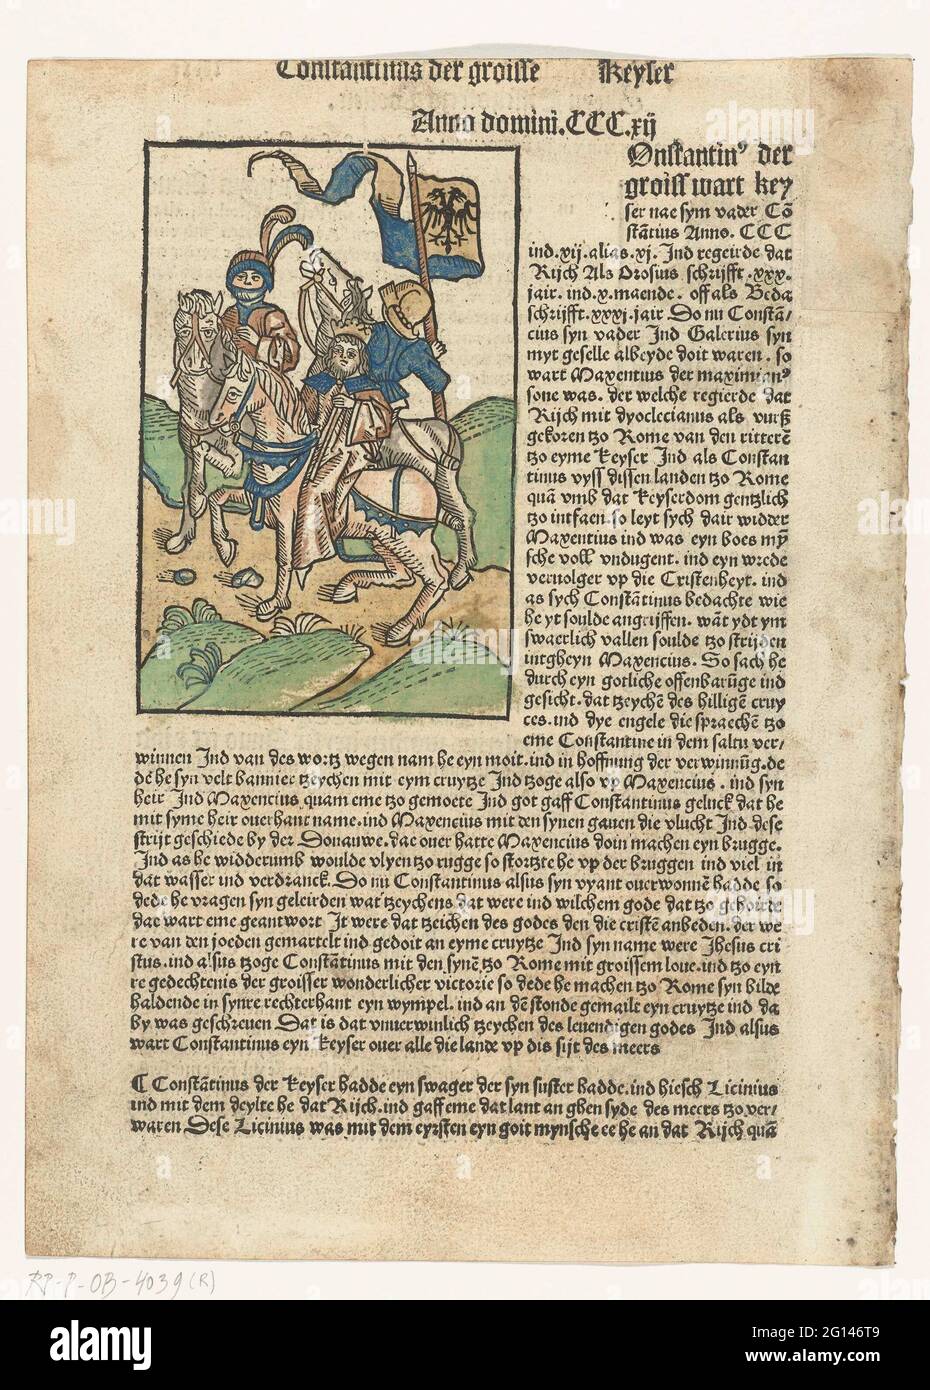 Constantinus der groisse Keyser
Anno domini.CCC.xij
Onstantinꝰ der
groiss wart key
ser nae sym vader Cō
stātius Anno. CCC
ind.xij.alias.xj. Ind regeirde dat
Rijch Als Orosius schrijfft.xxx.
jair.ind.x.maende. off als Beda
schrijfft.xxxj.jair Do nu Constā/
cius syn vader Ind Galerius syn
myt geselle albeyde doit waren. so
wart Maxentius der maximianꝰ
sone was. der welche regierde dat
Rijch mit dyoclecianus als vurß
gekoren tzo Rome van denritterē
tzo eyme keyser Ind als Constan
tinus vyss dissen landen tzo Rome
quā vmb dat keyserdom gentzlich
tzo intfaen.so leyt sych dair widder
Maxentius ind was eyn boes mȳ
sche voll vndugent. ind eyn wrede
veruolger vp die Cristenheyt. ind
as sych Constātinus bedachte wie
he yt soulde angrijffen. wāt ydt ym
swaerlich vallen soulde tzo strijden
intgheyn Maxencius. So sach he
durch eyn gotliche offenbarūge ind
gesicht.dat tzeychē des hilligē cruy
ces.ind dye engele die spraechē tzo
eme Constantine in dem saltu ver/
winnen Ind van des wortz wegen nam he eyn moit.ind in hoffnung der verwinnūg.de
dē he syn velt bannier tzeychen mit eym cruytze Ind tzoge also vp Maxencius. ind syn
heir Ind Maxencius quam eme tzo gemoete Ind got gaff Constantinus geluck dat he
mit syme heir ouerhant name.ind Maxencius mit den synen gauen die vlucht Ind dese
strijt geschiede by der Donauwe.dae ouer hatte Maxencius doin machen eyn brugge.
Ind as he widderumb woulde vlyen tzo rugge so stortzte he vp der bruggen ind viel in
dat wasser ind verdranck.Do nu Constantinus alsus syn vyant ouerwonnē hadde so
dede he vragen syn geleirden wat tzeychens dat were ind wilchem gode dat tzo gehoirde
dae wart eme geantwort It were dat tzeichen des godes den die cristē anbeden.der we
re van den joeden gemartelt ind gedoit an eyme cruytze Ind syn name were Jhesus cri
stus.ind alsus tzoge Constātinus mit den synē tzo Rome mit groissem loue.ind tzo eyn
re gedechtenis der groisser wonderlicher victorie so dede he machen tzo Rome syn bilde
haldende in synre rechterhant eyn wympel.ind an dē stonde gemailt eyn cruytze ind da
by was geschreuen Dat is dat vnuerwinlich tzeychen des leuendigen godes Ind alsus
wart Constantinus eyn keyser ouer alle die lande vp dis sijt des meers
⁋ Constātinus der keyser hadde eyn swager der syn suster hadde.ind hiesch Licinius
ind mit dem deylte he dat Rijch.ind gaff eme dat lant an ghen syde des meers tzo ver/
waren Dese Licinius was mit dem eyrsten eyn goit mynsche ee he an dat Rijch quā
RP-P-OB-4039(R)
alamy
Image ID: 2G146T9
www.alamy.com